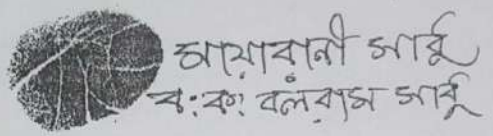 মায়ারানী সাবু
ব:কঃ বলরাম সাবু